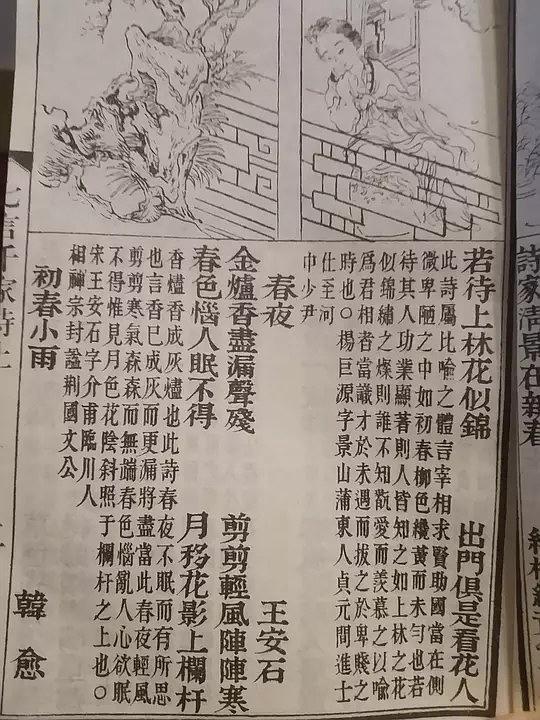 詩家清景在新春
若待上林花似錦　出門俱是看花人
此詩屬比喩之體言宰相求賢助國當在側
微卑陋之中如初春柳色纔黃而未勻也若
待其人功業顯著則人皆知之如上林之花
似錦繡之燦則誰不知翫愛而羨慕之以喩
爲君相者當識才於未遇而拔之於卑賤之
時也○楊巨源字景山蒲東人貞元間進士
仕至河
中少尹
春夜　王安石
金爐香盡漏聲殘　剪剪輕風陣陣寒
春色惱人眠不得　月移花影上欄杆
香燼香成灰燼也此詩春夜不眠而有所思
也言香已成灰而更漏將盡當此春夜輕風
剪剪寒氣森森而無端春色惱亂人心欲眠
不得惟見月色花陰斜照于欄杆之上也○
宋王安石字介甫臨川人
相神宗封謚荆國文公
初春小雨　韓愈
千家詩上